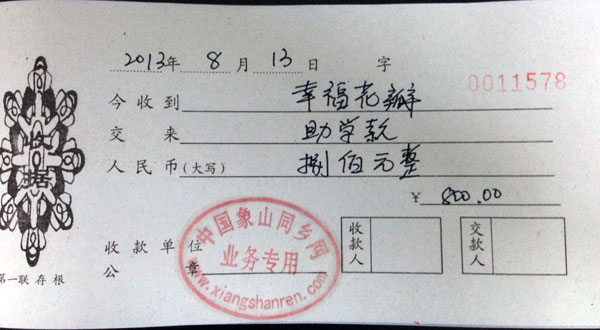 2013年 8 月 13 日 字
0011578
今收到 幸福花瓣
交来 助学款
人民币(大写) 捌佰元整
¥ 800.00
收据
收款单位
公章
中国象山同乡网
业务专用
www.xiangshanren.com
收款人
交款人
第一联存根